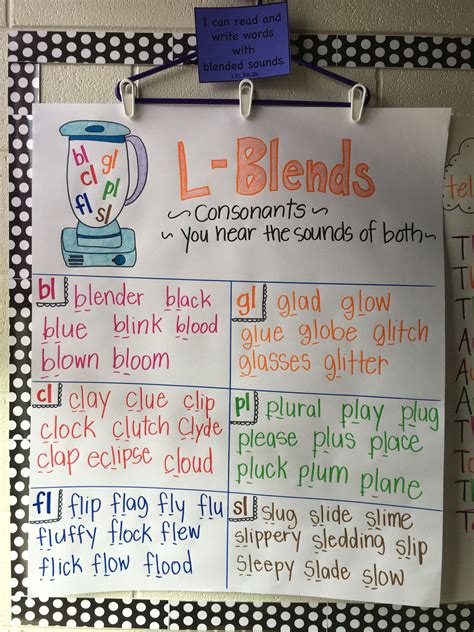 I can read and
write words
with
blended sounds.
bl gl
cl pl
fl sl
L-Blends
~ Consonants ~
~ You hear the sounds of both ~
bl blender black
blue blink blood
blown bloom
gl glad glow
glue globe glitch
glasses glitter
cl clay clue clip
clock clutch Clyde
clap eclipse cloud
pl plural play plug
please plus place
pluck plum plane
fl flip flag fly flu
fluffy flock flew
flick flow flood
sl slug slide slime
slippery sledding slip
sleepy slade slow
tel